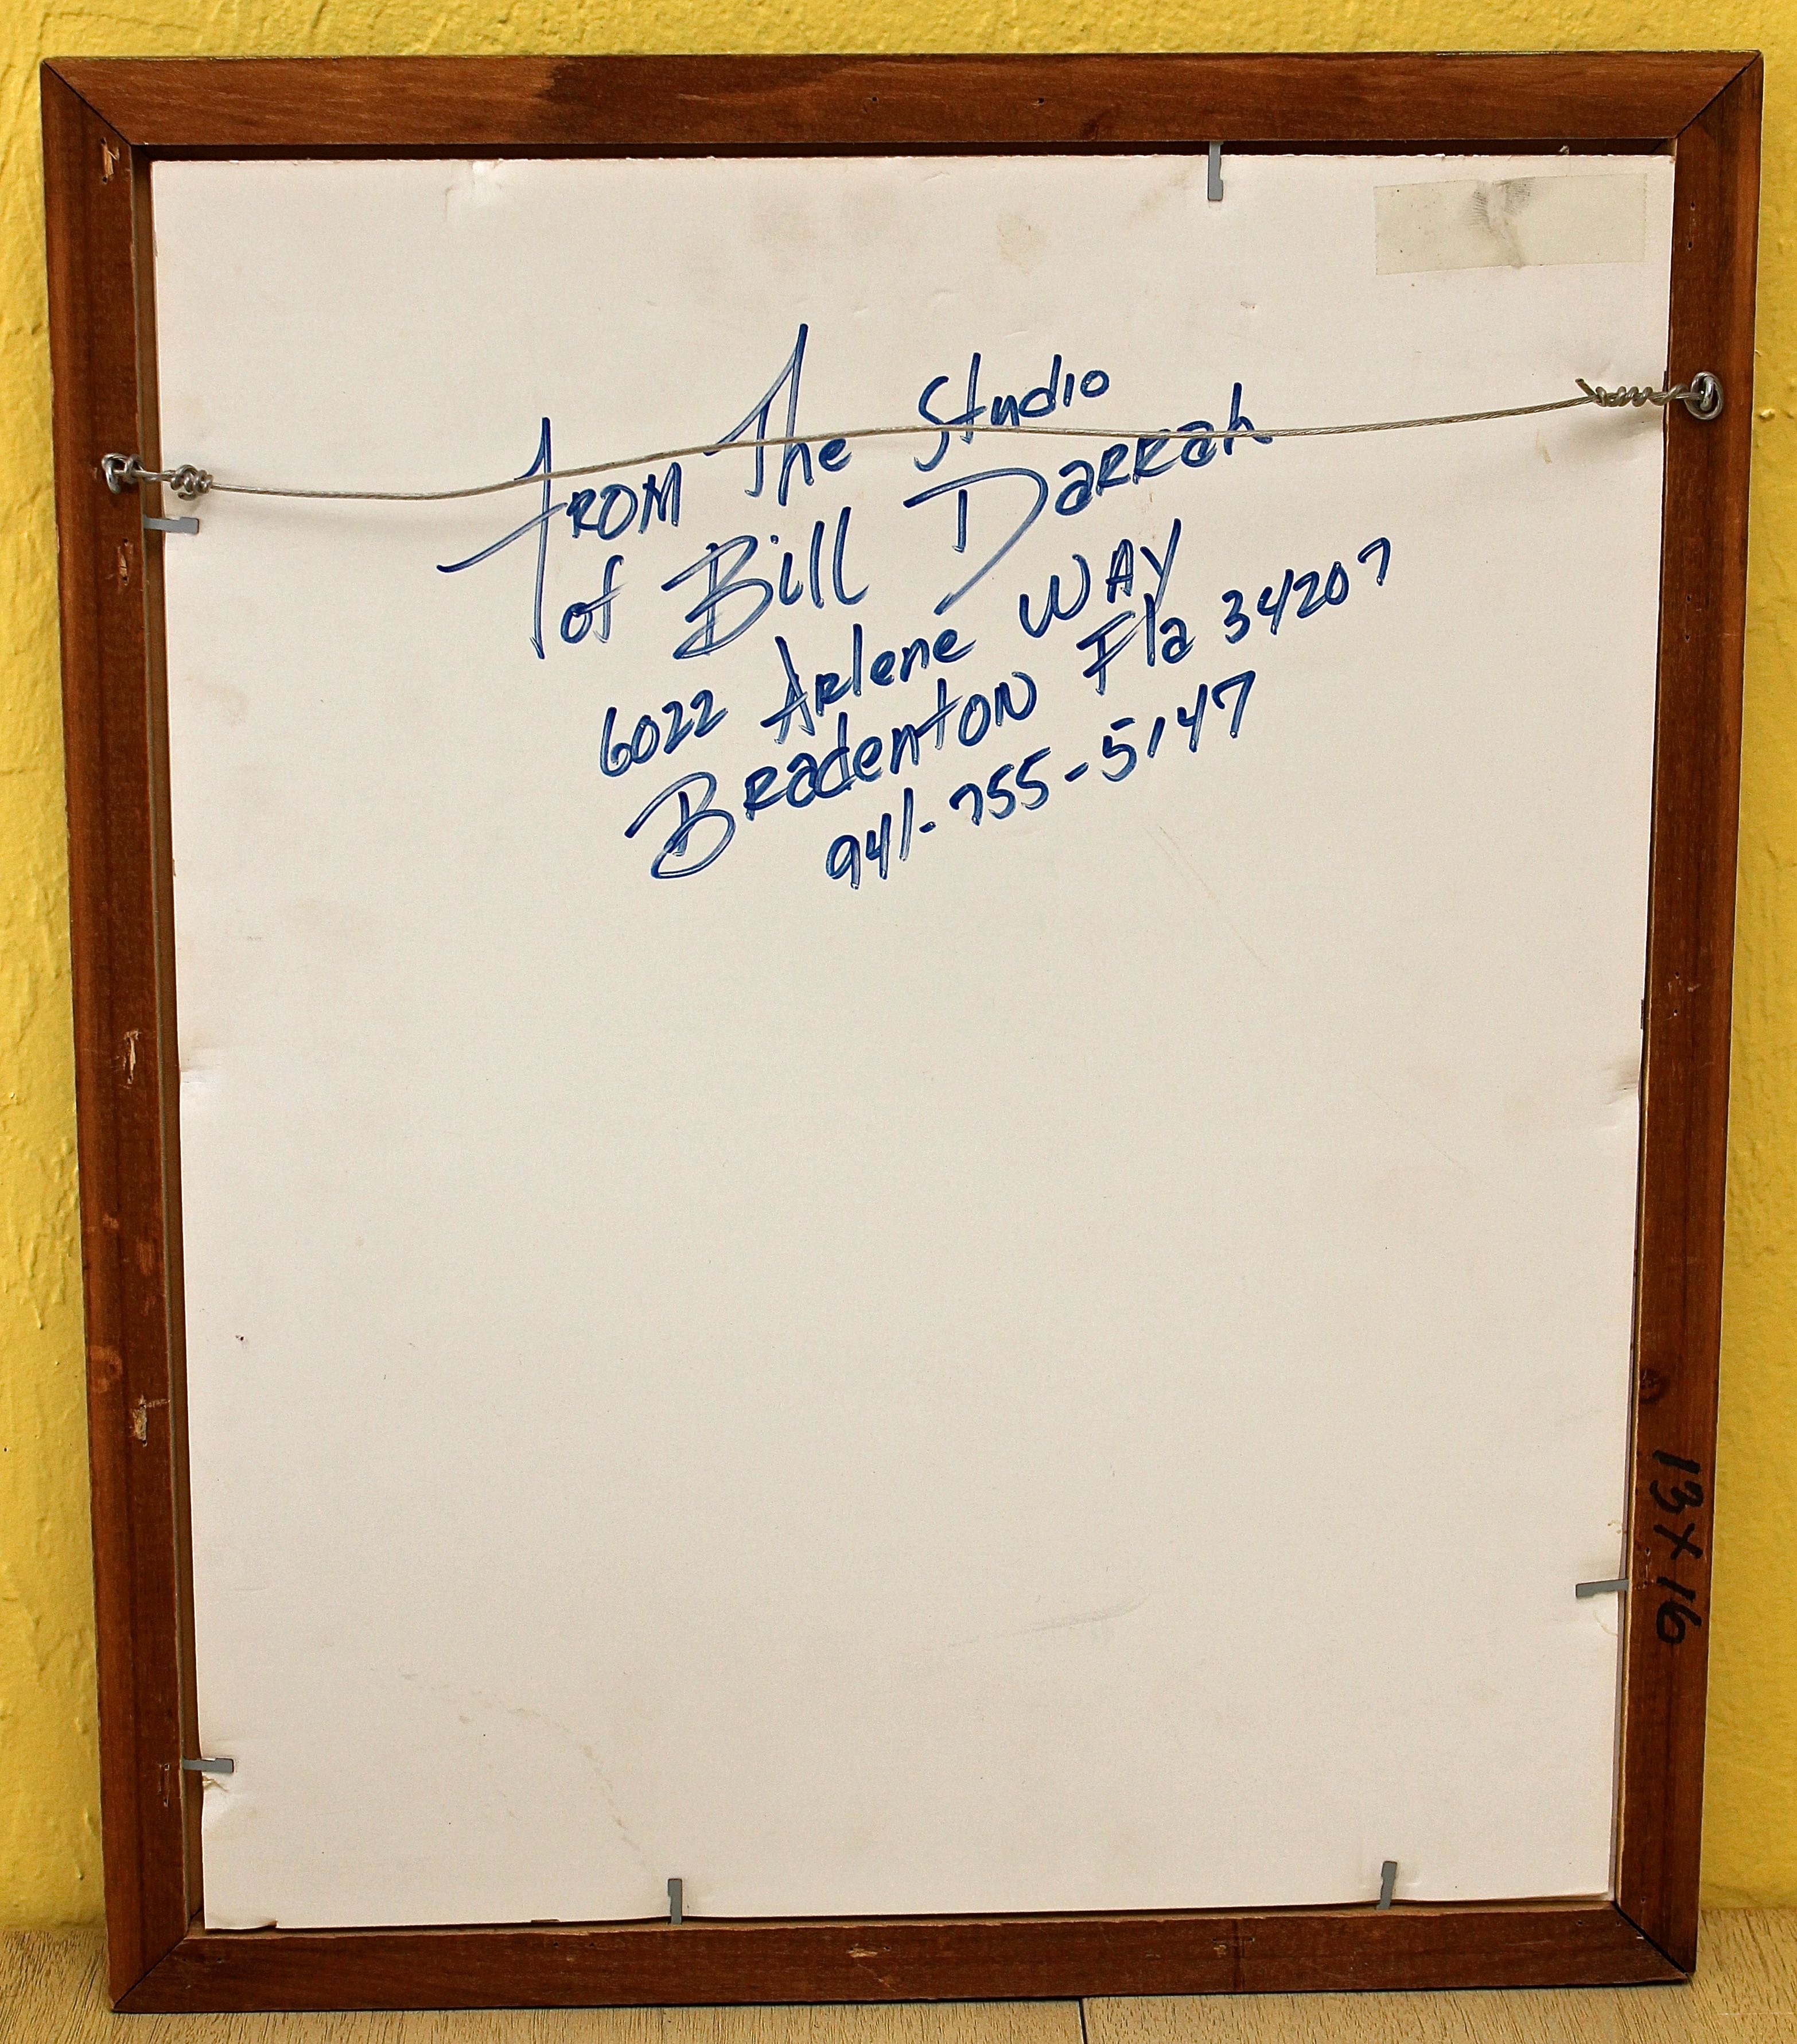 From The Studio
of Bill Darrah
6022 Arlene WAY
Bradenton Fla 34207
941-755-5147
13x16